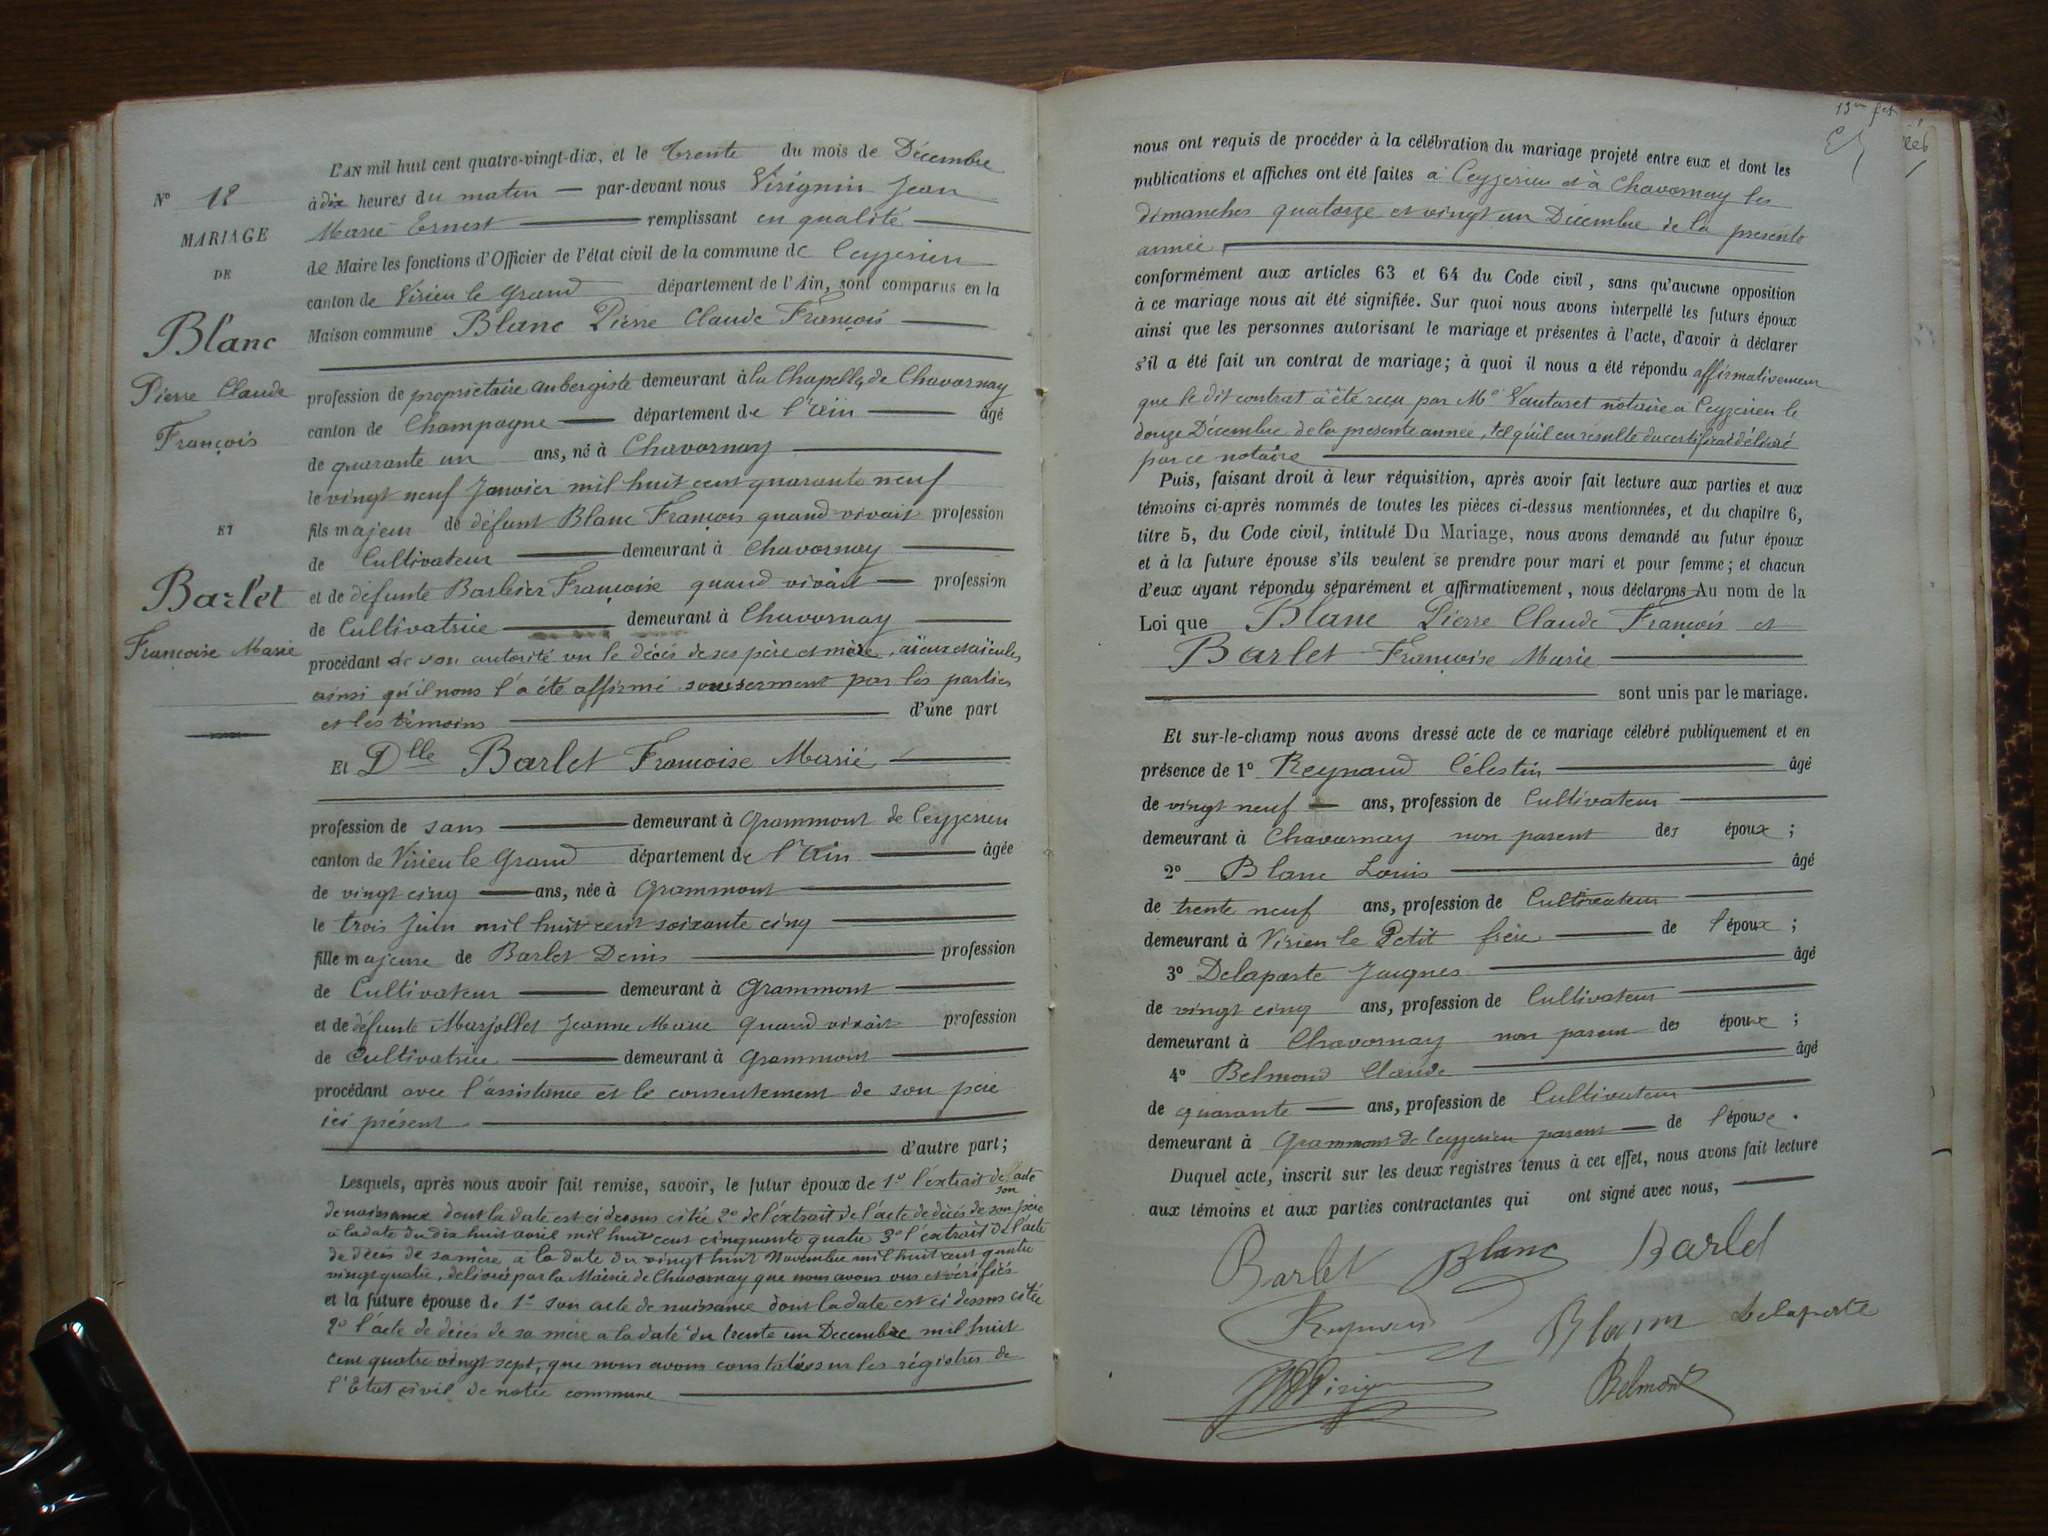 L'AN mil huit cent quatre-vingt-dix, et le trente du mois de Décembre
à dix heures du matin — par-devant nous Virignin Jean
Marie Ernest — remplissant en qualité —
de Maire les fonctions d'Officier de l'état civil de la commune de Ceyzerieu
canton de Virieu le Grand département de l'Ain, sont comparus en la
Maison commune Blanc Pierre Claude François —
profession de propriétaire aubergiste demeurant à la Chapelle de Chavornay
canton de Champagne — département de l'Ain — âgé
de quarante un ans, né à Chavornay —
le vingt neuf Janvier mil huit cent quarante neuf
fils majeur de défunt Blanc François quand vivait profession
de Cultivateur — demeurant à Chavornay —
et de défunte Barbier Françoise quand vivait — profession
de Cultivatrice — demeurant à Chavornay —
procédant de son autorité vu le décès de ses père et mère, aïeux et aïeules,
ainsi qu'il nous l'a été affirmé sous serment par les parties
et les témoins — d'une part
Et Dlle Barlet Françoise Marie —
profession de sans — demeurant à Grammont de Ceyzerieu
canton de Virieu le Grand département de l'Ain — âgée
de vingt cinq — ans, née à Grammont —
le trois Juin mil huit cent soixante cinq —
fille majeure de Barlet Denis — profession
de Cultivateur — demeurant à Grammont —
et de défunte Marjollet Jeanne Marie quand vivait profession
de Cultivatrice — demeurant à Grammont —
procédant avec l'assistance et le consentement de son père
ici présent. —
— d'autre part;
Lesquels, après nous avoir fait remise, savoir, le futur époux de 1° l'extrait de l'acte
de naissance dont la date est ci dessus citée 2° de l'extrait de l'acte de décès de son père
à la date du dix huit avril mil huit cent cinquante quatre 3° l'extrait de l'acte
de décès de sa mère à la date du vingt huit Novembre mil huit cent quatre
vingt quatre, délivrés par la Mairie de Chavornay que nous avons vus et vérifiés
et la future épouse de 1° son acte de naissance dont la date est ci dessus citée
2° l'acte de décès de sa mère à la date du trente un Decembre mil huit
cent quatre vingt sept, que nous avons constatés sur les régistres de
l'Etat civil de notre commune —
N° 18
MARIAGE
DE
Blanc
Pierre Claude
François
ET
Barlet
Françoise Marie
nous ont requis de procéder à la célébration du mariage projeté entre eux et dont les
publications et affiches ont été faites à Ceyzerieu et à Chavornay les
dimanches quatorze et vingt un Décembre de la presente
année, —
conformément aux articles 63 et 64 du Code civil, sans qu'aucune opposition
à ce mariage nous ait été signifiée. Sur quoi nous avons interpellé les futurs époux
ainsi que les personnes autorisant le mariage et présentes à l'acte, d'avoir à déclarer
s'il a été fait un contrat de mariage; à quoi il nous a été répondu affirmativement
que le dit contrat a été reçu par Me Vautaret notaire à Ceyzerieu le
douze Décembre de la presente année, tel qu'il en résulte du certificat délivré
par ce notaire —
Puis, faisant droit à leur réquisition, après avoir fait lecture aux parties et aux
témoins ci-après nommés de toutes les pièces ci-dessus mentionnées, et du chapitre 6,
titre 5, du Code civil, intitulé Du Mariage, nous avons demandé au futur époux
et à la future épouse s'ils veulent se prendre pour mari et pour femme; et chacun
d'eux ayant répondu séparément et affirmativement, nous déclarons Au nom de la
Loi que Blanc Pierre Claude François et
Barlet Françoise Marie —
— sont unis par le mariage.
Et sur-le-champ nous avons dressé acte de ce mariage célébré publiquement et en
présence de 1° Reynaud Célestin — âgé
de vingt neuf — ans, profession de Cultivateur —
demeurant à Chavornay non parent des époux;
2° Blanc Louis — âgé
de trente neuf ans, profession de Cultivateur —
demeurant à Virieu le Petit frère — de l'époux;
3° Delaporte Jacques — âgé
de vingt cinq ans, profession de Cultivateur —
demeurant à Chavornay non parent des époux;
4° Belmond Claude — âgé
de quarante — ans, profession de Cultivateur —
demeurant à Grammont de Ceyzerieu parent — de l'épouse.
Duquel acte, inscrit sur les deux registres tenus à cet effet, nous avons fait lecture
aux témoins et aux parties contractantes qui ont signé avec nous, —
Barlet Blanc Barlet
Reynaud Blanc Delaporte
Belmont